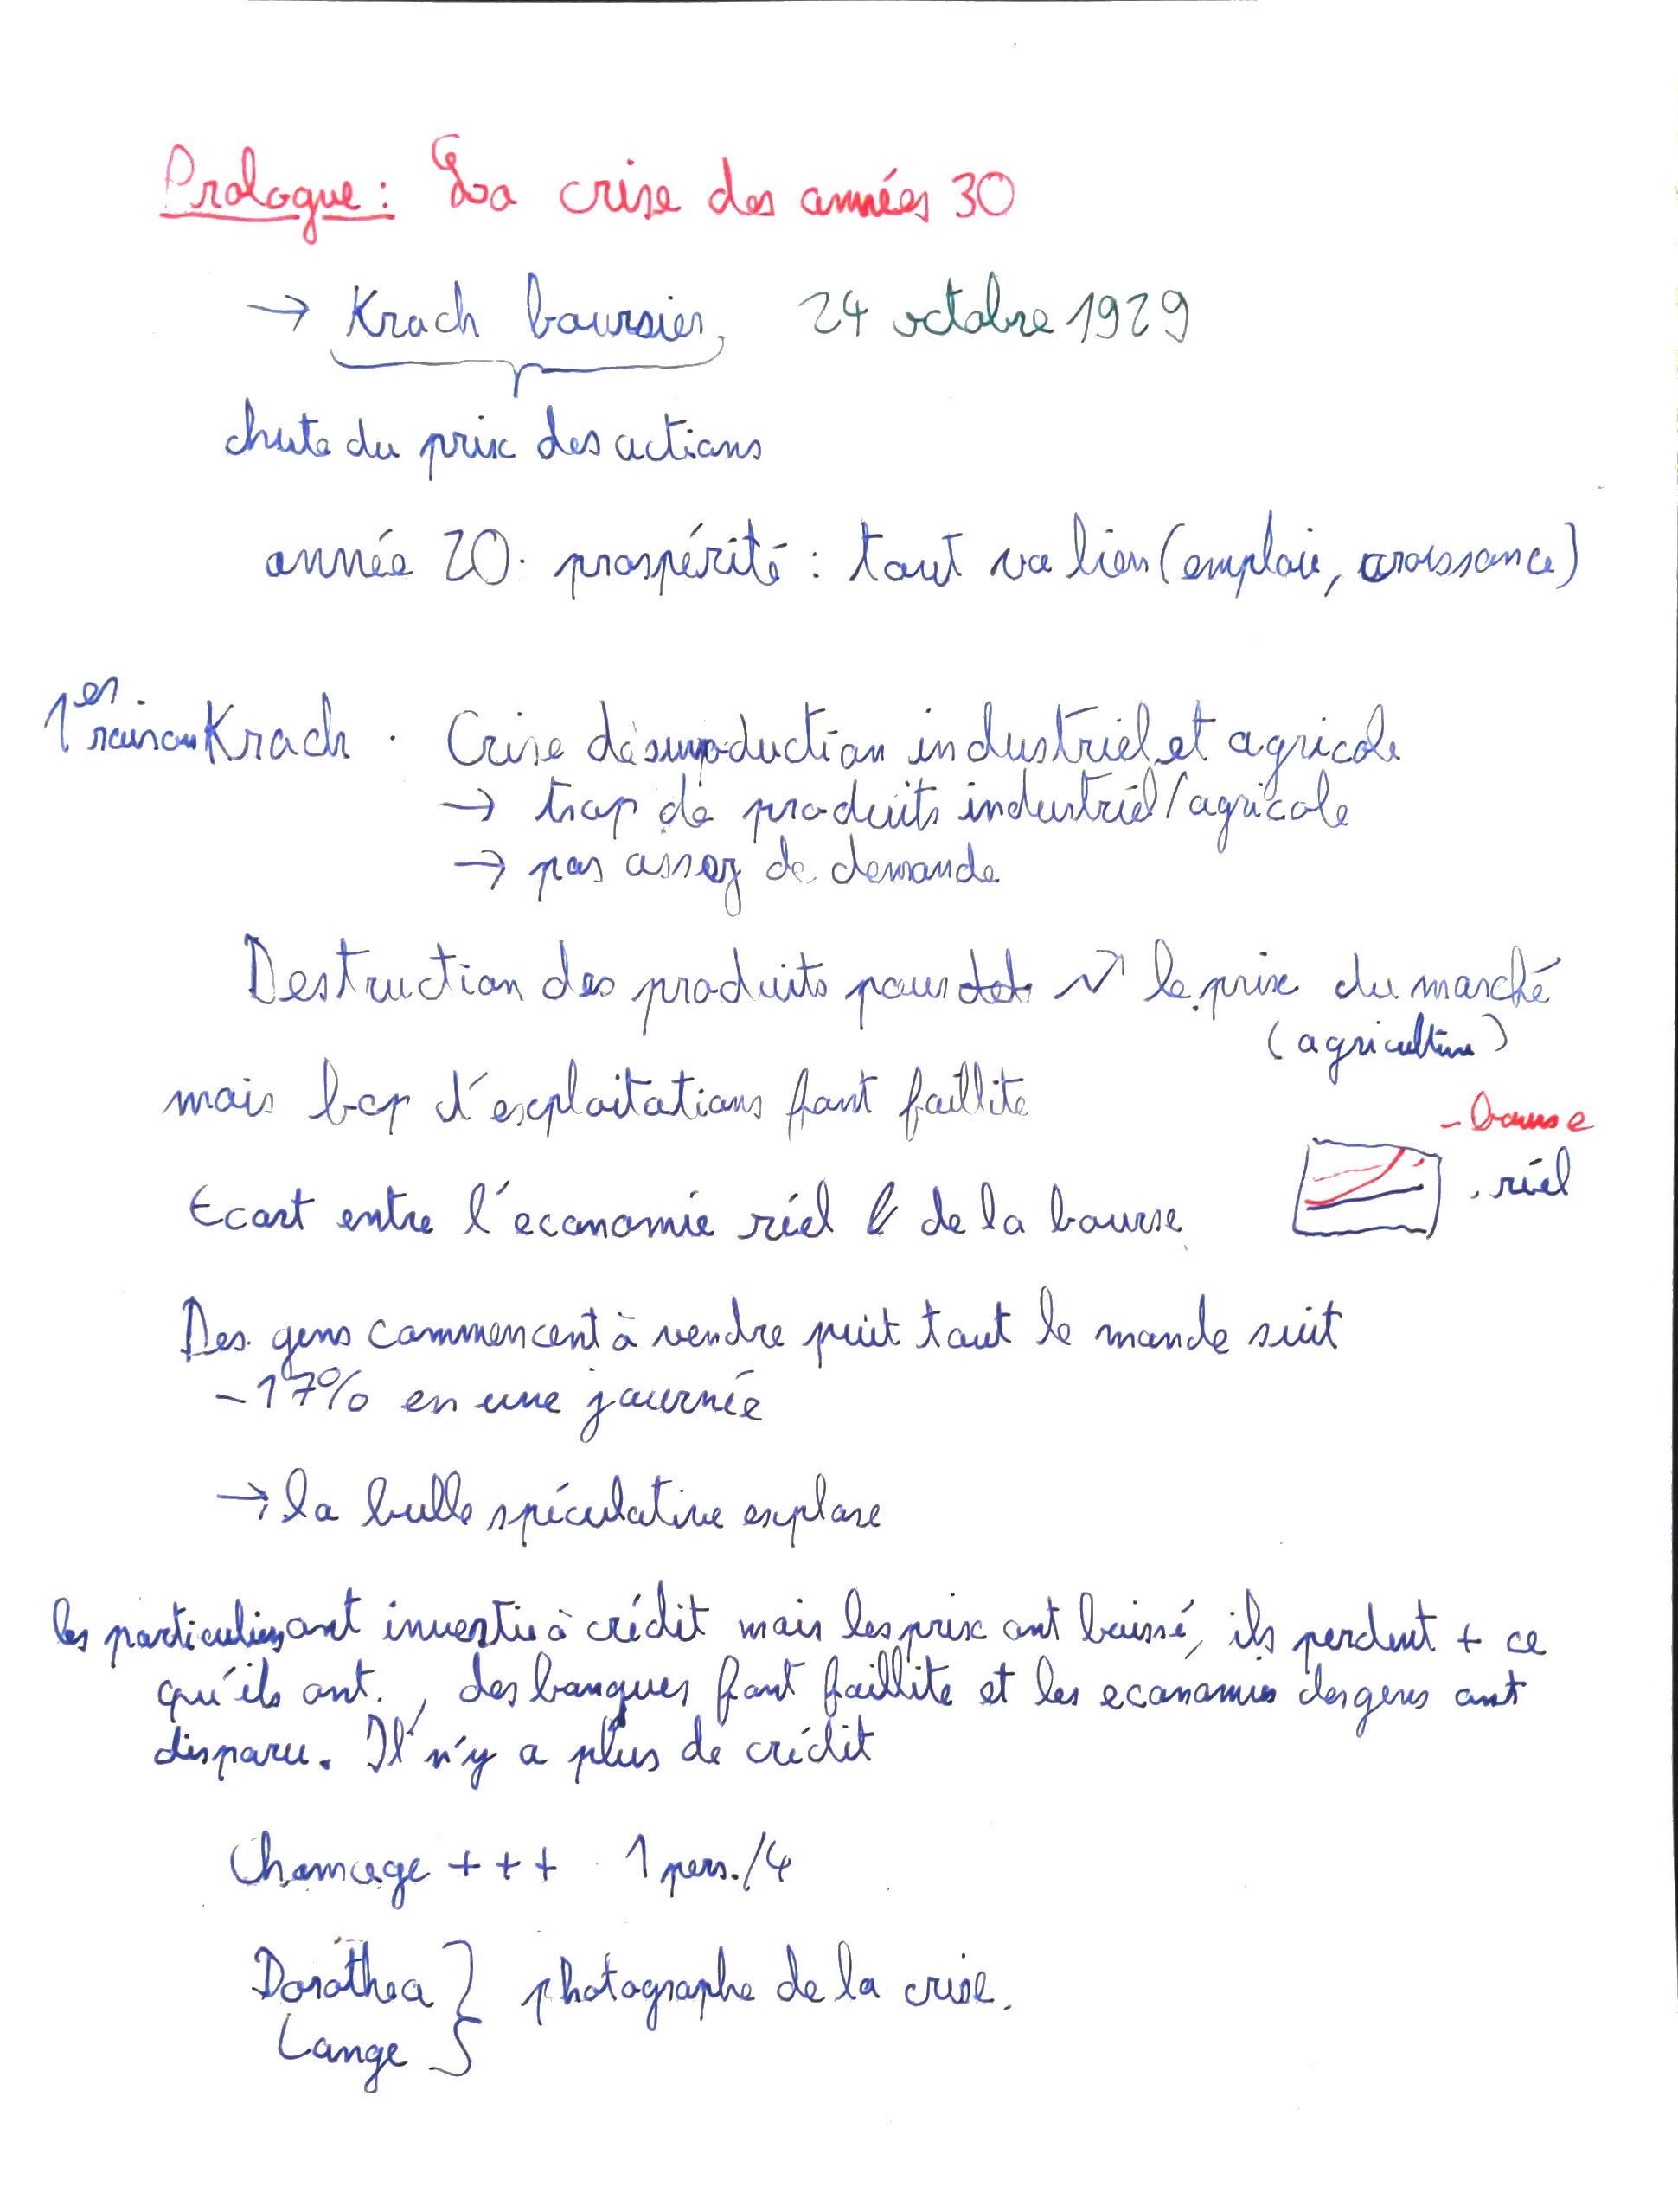 Prologue : La crise des années 30
→ Krach boursier, 24 octobre 1929
chute du prix des actions
année 20. prospérité : tout va bien (emploie, croissance)
1er raison Krach . Crise de surproduction industriel et agricole
→ trop de produits industriel/agricole
→ pas assez de demande
Destruction des produits pour ↗ le prix du marché
(agriculture)
mais bcp d'exploitations font faillite
- bourse
. réel
Ecart entre l'economie réel & de la bourse
Des gens commencent à vendre puit tout le monde suit
-17% en une journée
→ la bulle spéculative explose
les particuliers ont investit à crédit mais les prix ont baissé, ils perdent + ce
qu'ils ont. , des banques font faillite et les economies des gens ont
disparu. Il n'y a plus de crédit
Chomage +++ 1 pers./4
Dorothea
Lange } photographe de la crise.